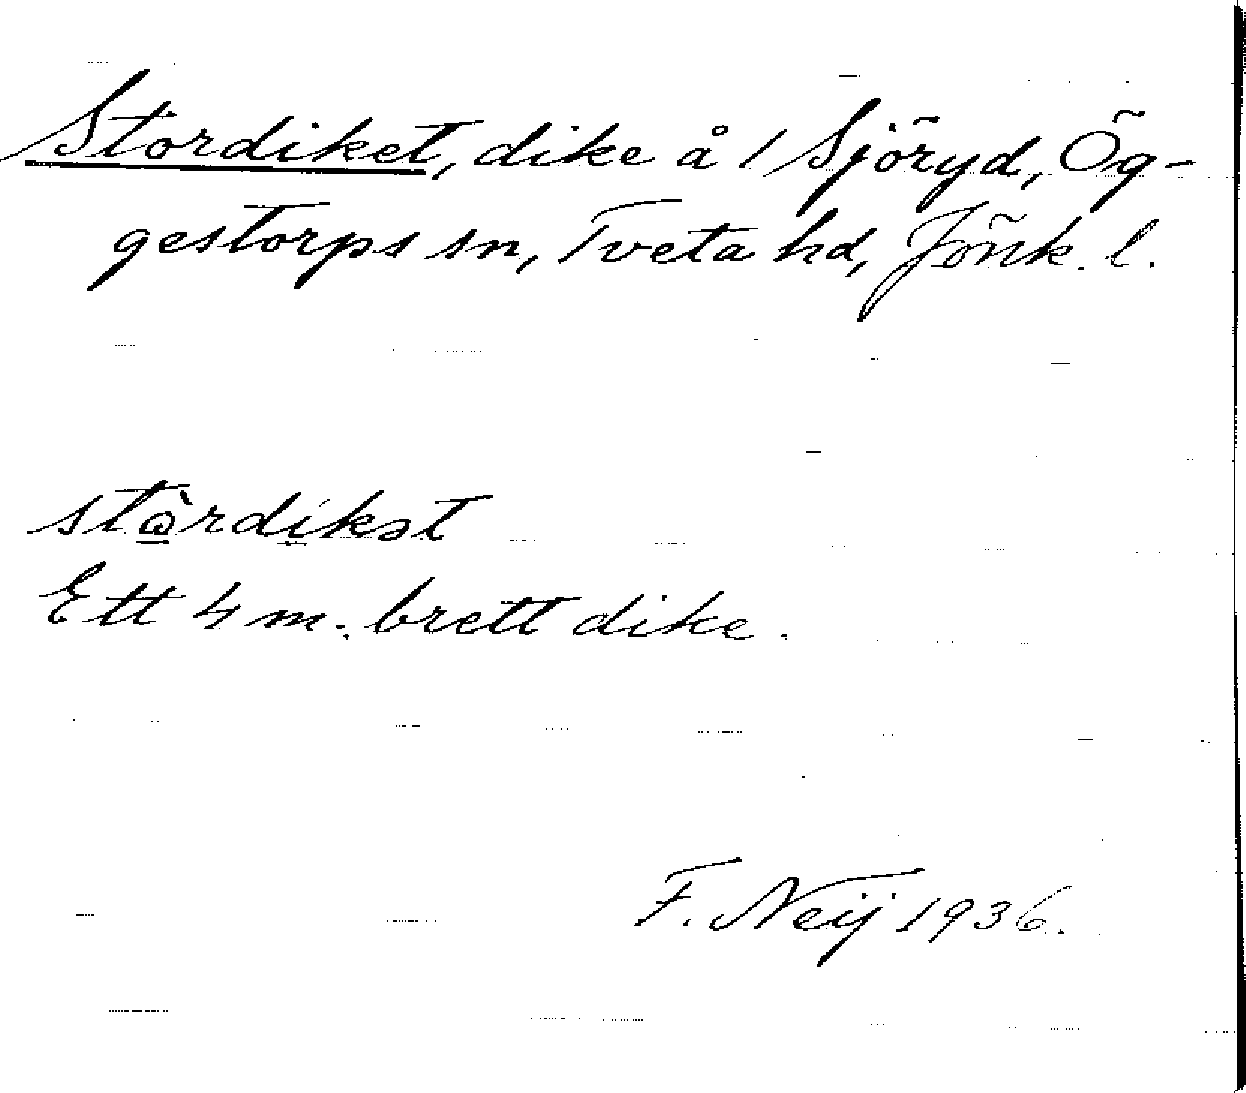 Stordiket, dike å 1 Sjöryd, Ög-
gestorps sn, Tveta hd, Jönk. l.
stò̱rdi̱kət
Ett 4 m. brett dike.
F. Neij 1936.